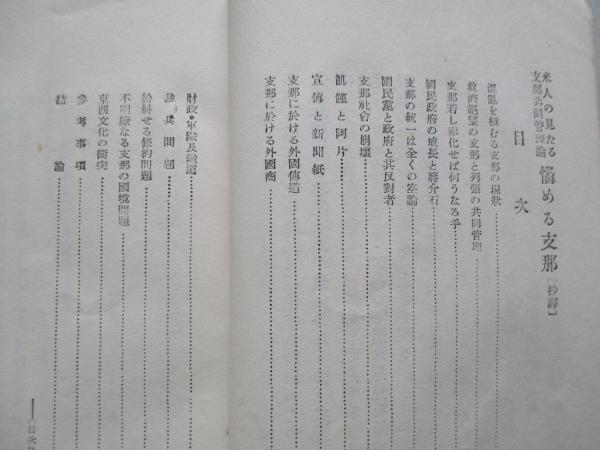 米人の見たる
支那共同管理論
悩める支那【抄譯】
目次
混亂を極むる支那の現狀
救濟絕望の支那と列强の共同管理
支那若し赤化せば何うなる乎
國民政府の成長と蔣介石
支那の統一は全くの空論
國民黨と政府と共反對者
支那社會の崩壞
饑饉と阿片
宣傳と新聞紙
支那に於ける外國傳道
支那に於ける外國商
財政・軍隊及鐵道
裁兵問題
紛糾せる條約問題
不明瞭なる支那の國境問題
東西文化の衝突
參考事項
結論
目次